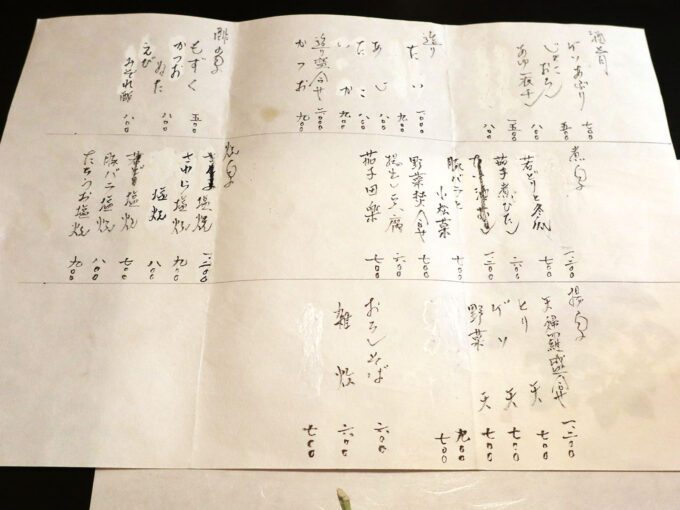 酒肴
げそあぶり 七〇〇
じゃこおろし 五〇〇
あゆ一夜干し 一五〇〇
八〇〇
造り
たい 一〇〇〇
あじ 九〇〇
たこ 八〇〇
いか 九〇〇
造り盛合せ 二〇〇〇
かつお 九〇〇
酢の物
もずく 五〇〇
かつお
ぬた 八〇〇
えび
みぞれ酢 八〇〇
煮物
一二〇〇
若どりと冬瓜 七〇〇
茄子煮びたし 六〇〇
一二〇〇
豚バラと
小松菜 七〇〇
野菜焚合せ 七〇〇
揚出し豆腐 六〇〇
茄子田楽 七〇〇
焼物
塩焼 一二〇〇
さわら塩焼 九〇〇
塩焼 八〇〇
塩焼 七〇〇
豚バラ塩焼 八〇〇
たちうお塩焼 九〇〇
揚物
天婦羅盛合せ 一二〇〇
とり天 七〇〇
げそ天 七〇〇
野菜天 七〇〇
九〇〇
七〇〇
おろしそば 六〇〇
雑炊 六〇〇
七〇〇